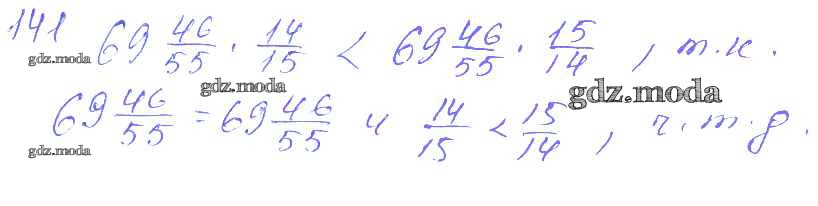 141 69 46/55 · 14/15 < 69 46/55 · 15/14 , т.к.
gdz.moda
gdz.moda
gdz.moda
69 46/55 = 69 46/55 и 14/15 < 15/14 , ч.т.д.
gdz.moda